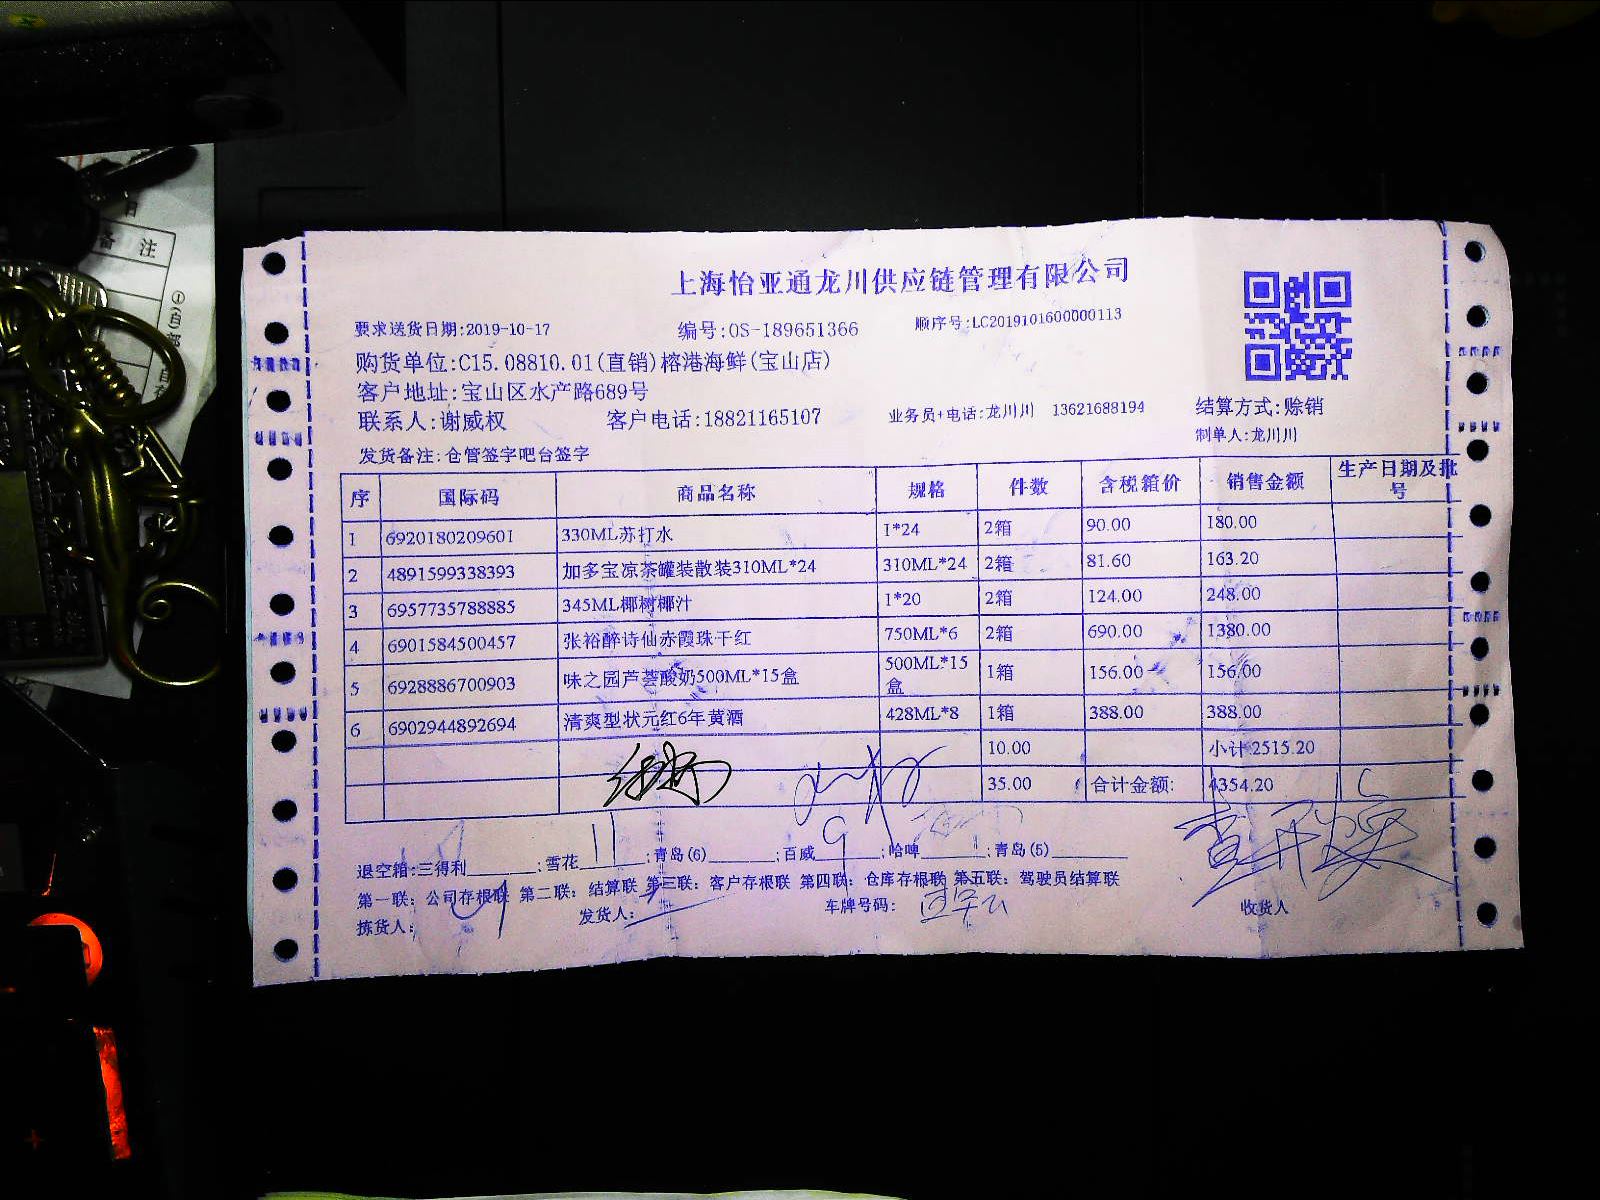 备 注
上海怡亚通龙川供应链管理有限公司
要求送货日期:2019-10-17 编号:OS-189651366 顺序号:LC2019101600000113
购货单位:C15.08810.01(直销)榕港海鲜(宝山店)
客户地址:宝山区水产路689号
联系人:谢威权 客户电话:18821165107 业务员+电话:龙川川 13621688194 结算方式:赊销
制单人:龙川川
发货备注:仓管签字吧台签字
序 国际码 商品名称 规格 件数 含税箱价 销售金额 生产日期及批号
1 6920180209601 330ML苏打水 1*24 2箱 90.00 180.00
2 4891599338393 加多宝凉茶罐装散装310ML*24 310ML*24 2箱 81.60 163.20
3 6957735788885 345ML椰树椰汁 1*20 2箱 124.00 248.00
4 6901584500457 张裕醉诗仙赤霞珠干红 750ML*6 2箱 690.00 1380.00
5 6928886700903 味之园芦荟酸奶500ML*15盒 500ML*15盒 1箱 156.00 156.00
6 6902944892694 清爽型状元红6年黄酒 428ML*8 1箱 388.00 388.00
10.00 小计:2515.20
35.00 合计金额: 4354.20
退空箱:三得利 ;雪花 11 ;青岛(6) ;百威 9 ;哈啤 ;青岛(5)
第一联：公司存根联 第二联：结算联 第三联：客户存根联 第四联：仓库存根联 第五联：驾驶员结算联
拣货人： 发货人： 车牌号码： 收货人